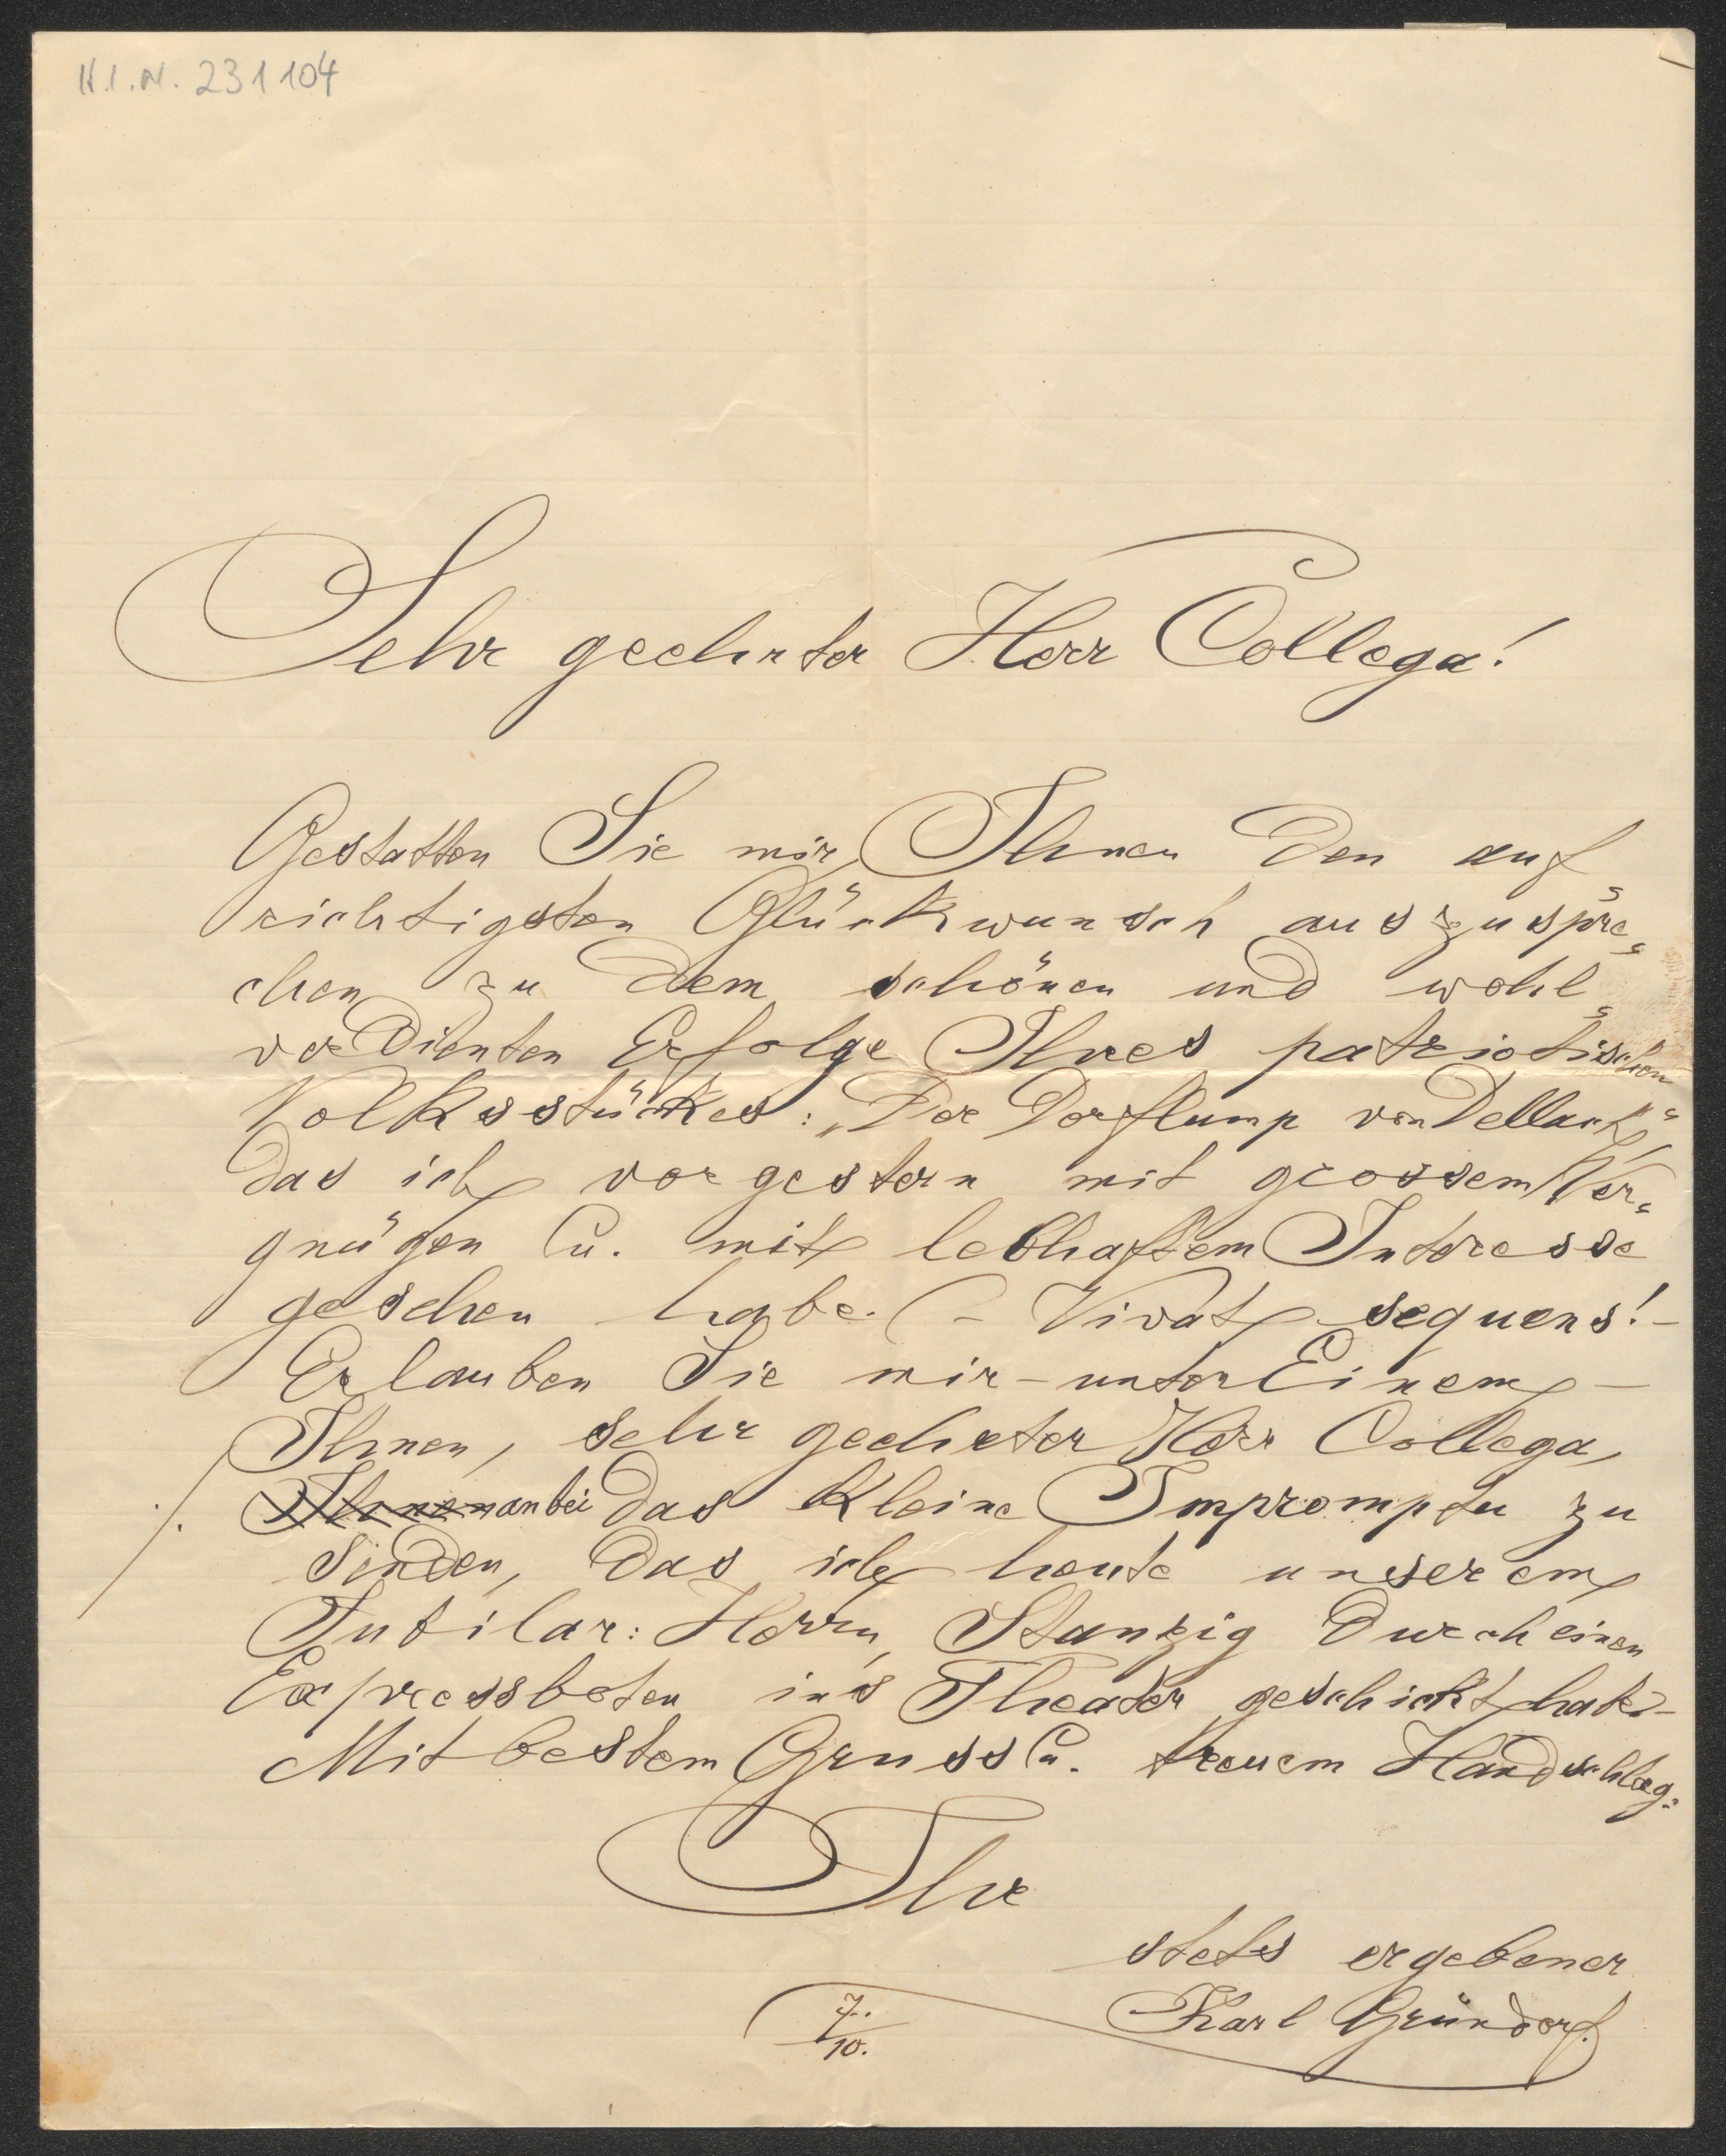 H.I.N. 231104
Sehr geehrter Herr Collega!
Gestatten Sie mir, Ihnen den auf
richtigsten Glückwunsch auszuspre„
chen zu dem schönen und wohl„
verdienten Erfolge Ihres patriotischen
Volksstückes: „Der Dorflump von Dellach“,
das ich vorgestern mit grossem Ver„
gnügen u. mit lebhaftem Interesse
gesehen habe. – Vivat sequens! –
Erlauben Sie mir – unter Einem –
Ihnen, sehr geehrter Herr Collega,
./. Ihnen anbei das kleine Impromptu zu
senden, das ich heute unserem
Jubilar: Herrn Stanzig durch einen
Expressboten in's Theater geschickt habe. –
Mit bestem Gruss u. treuem Handschlag:
Ihr
stets ergebener
Karl Gründorf.
7./10.